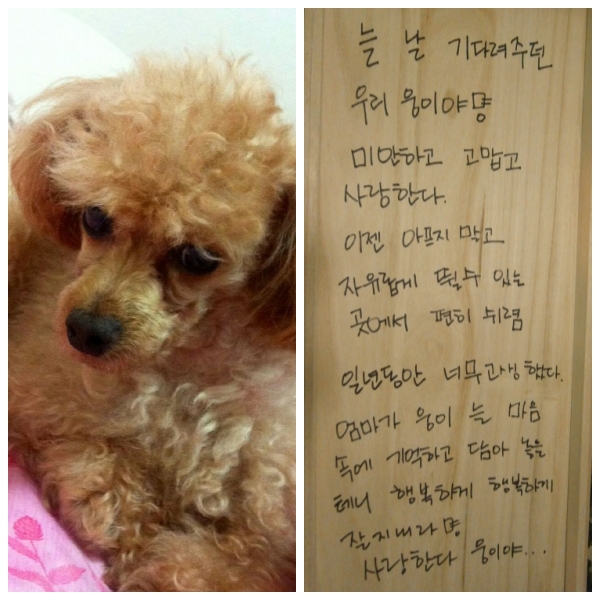 늘 날 기다려주던
우리 웅이야멍
미안하고 고맙고
사랑한다.
이젠 아프지 막고
자유롭게 뛸수 있는
곳에서 편히 쉬렴
일년동안 너무고생했다.
엄마가 웅이 늘 마음
속에 기억하고 담아 놓을
테니 행복하게 행복하게
잘지내라멍
사랑한다 웅이야...